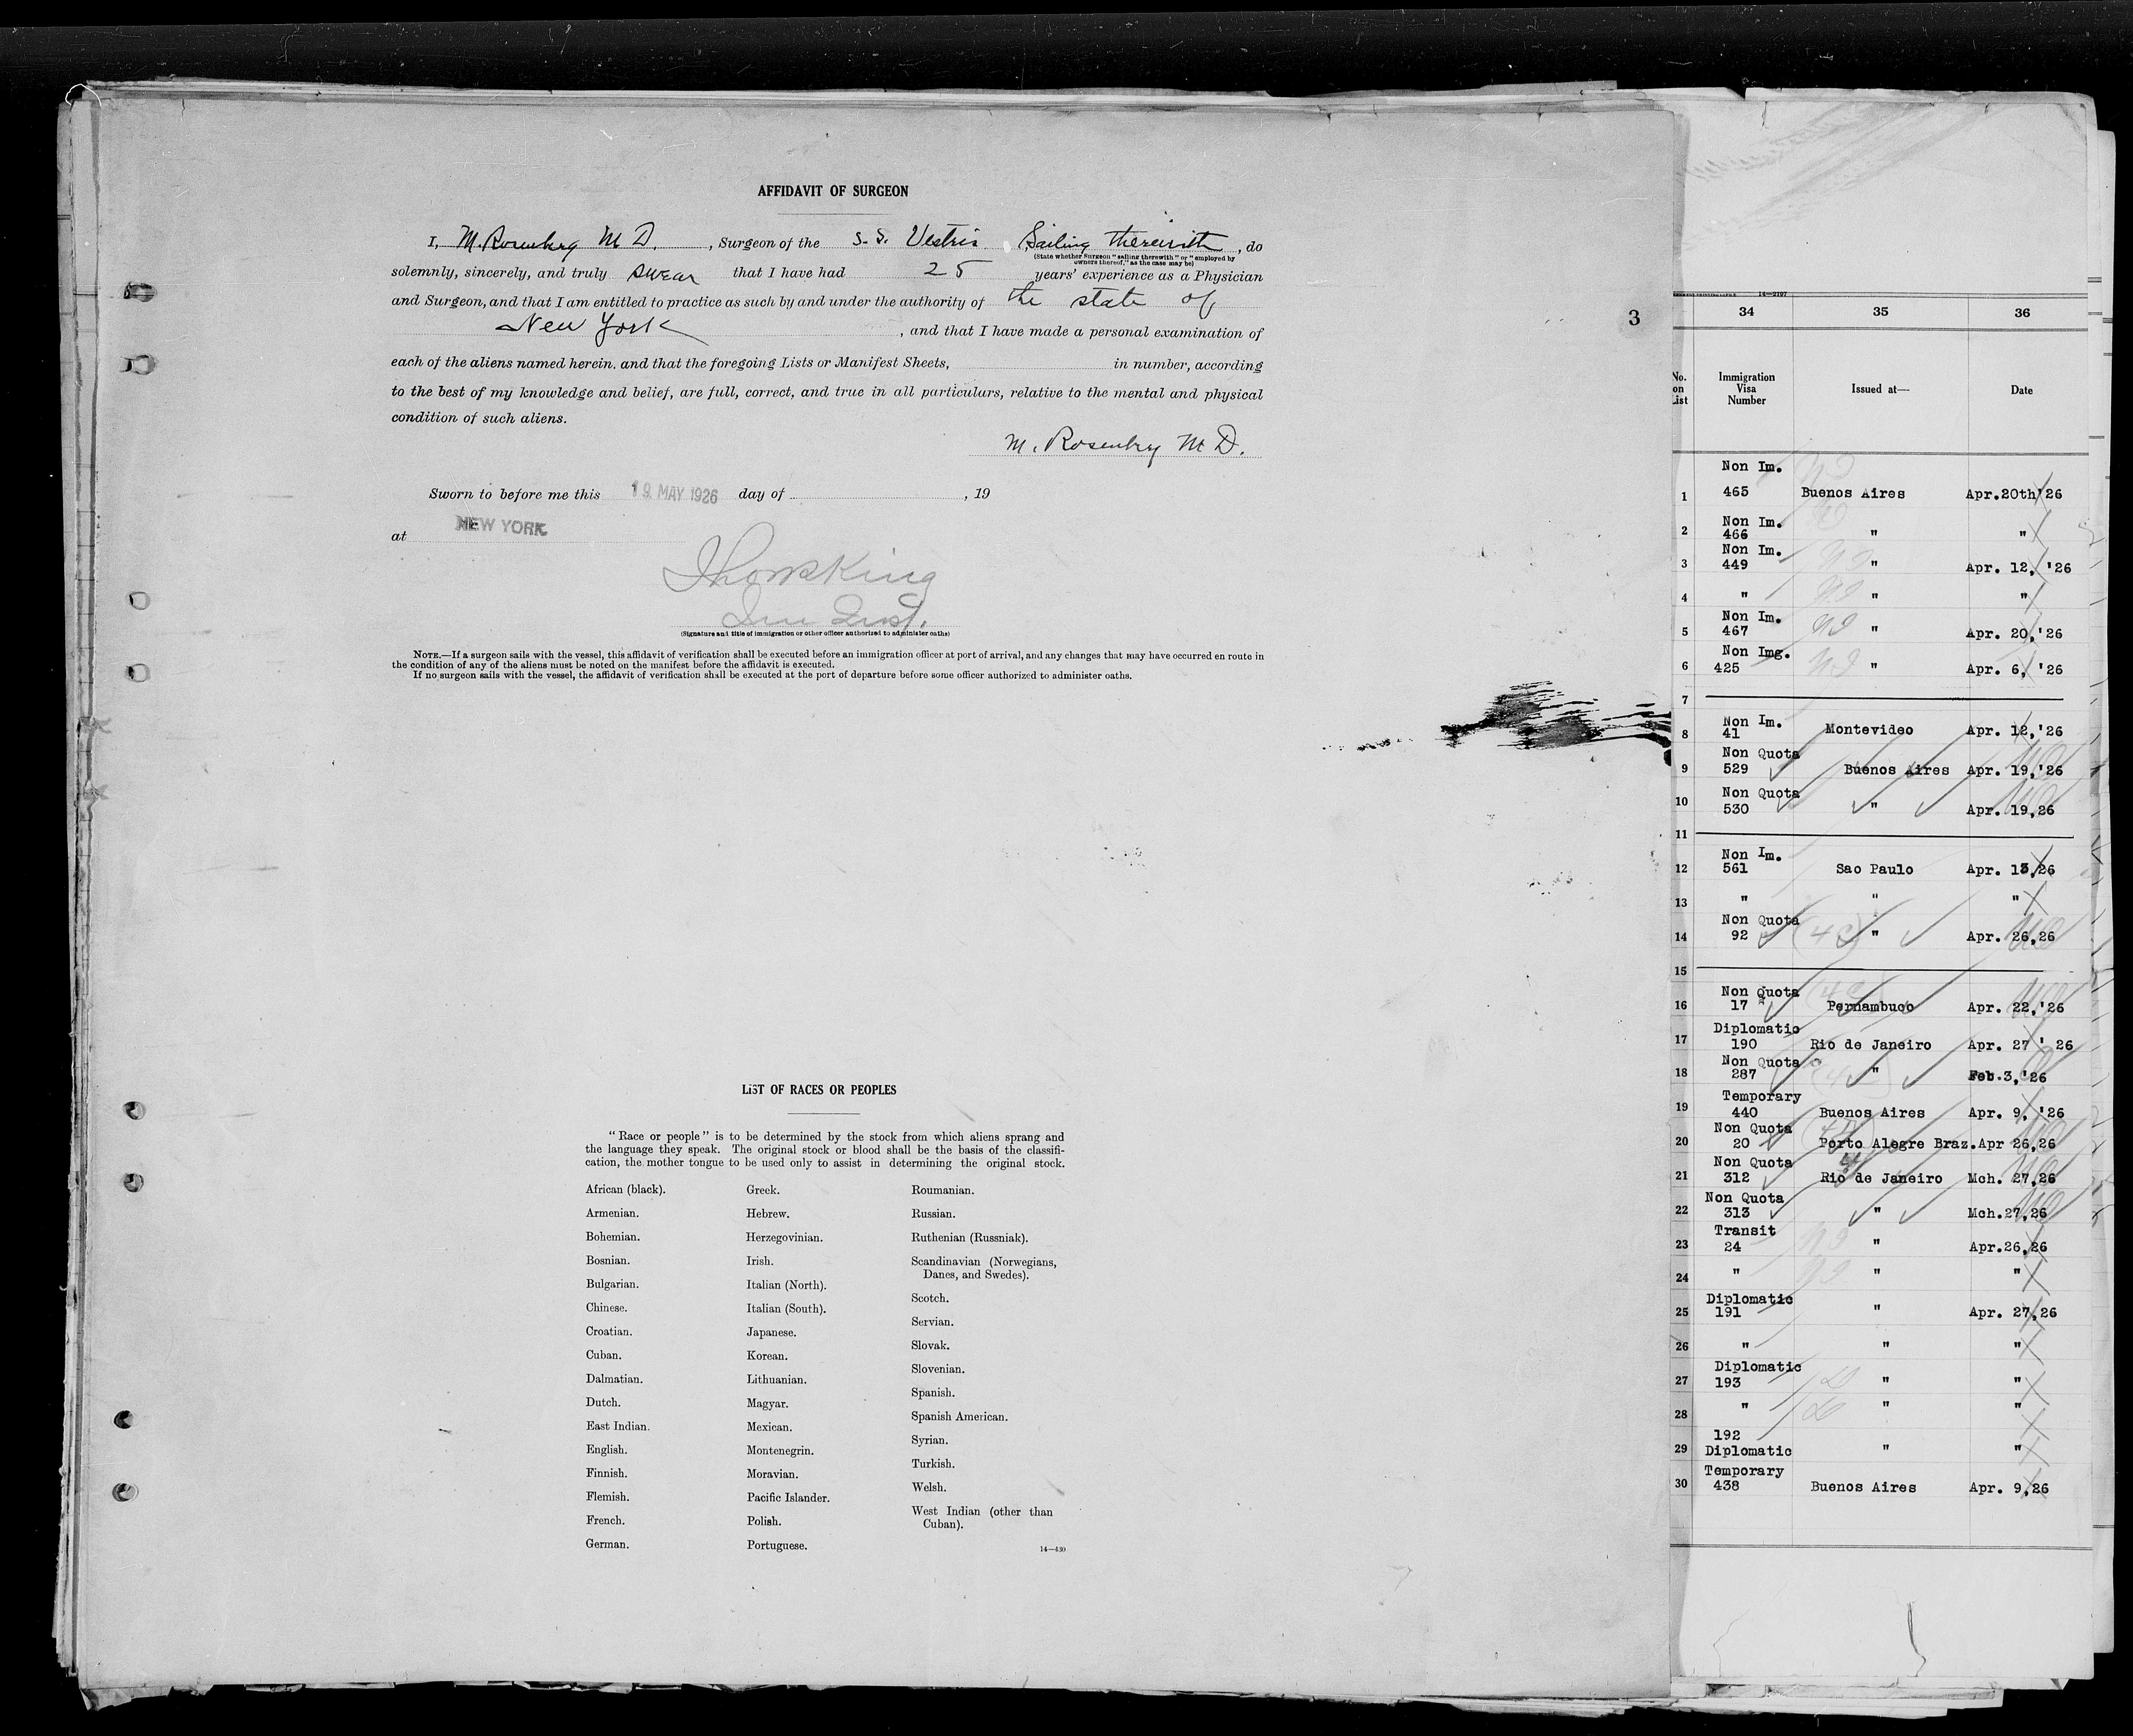 AFFIDAVIT OF SURGEON
I, M. Rosenberg M D. , Surgeon of the S. S. Vestris Sailing therewith , do
(State whether Surgeon "sailing therewith" or "employed by
owners thereof," as the case may be)
solemnly, sincerely, and truly swear that I have had 25 years' experience as a Physician
and Surgeon, and that I am entitled to practice as such by and under the authority of the state of
New York , and that I have made a personal examination of
each of the aliens named herein. and that the foregoing Lists or Manifest Sheets, in number, according
to the best of my knowledge and belief, are full, correct, and true in all particulars, relative to the mental and physical
condition of such aliens.
M. Rosenberg M D.
Sworn to before me this 19 MAY 1926 day of , 19
at NEW YORK
(Signature and title of immigration or other officer authorized to administer oaths)
NOTE.—If a surgeon sails with the vessel, this affidavit of verification shall be executed before an immigration officer at port of arrival, and any changes that may have occurred en route in
the condition of any of the aliens must be noted on the manifest before the affidavit is executed.
If no surgeon sails with the vessel, the affidavit of verification shall be executed at the port of departure before some officer authorized to administer oaths.
LIST OF RACES OR PEOPLES
"Race or people" is to be determined by the stock from which aliens sprang and
the language they speak. The original stock or blood shall be the basis of the classifi-
cation, the mother tongue to be used only to assist in determining the original stock.
African (black).
Armenian.
Bohemian.
Bosnian.
Bulgarian.
Chinese.
Croatian.
Cuban.
Dalmatian.
Dutch.
East Indian.
English.
Finnish.
Flemish.
French.
German.
Greek.
Hebrew.
Herzegovinian.
Irish.
Italian (North).
Italian (South).
Japanese.
Korean.
Lithuanian.
Magyar.
Mexican.
Montenegrin.
Moravian.
Pacific Islander.
Polish.
Portuguese.
Roumanian.
Russian.
Ruthenian (Russniak).
Scandinavian (Norwegians,
Danes, and Swedes).
Scotch.
Servian.
Slovak.
Slovenian.
Spanish.
Spanish American.
Syrian.
Turkish.
Welsh.
West Indian (other than
Cuban).
14—430
3
14—2197
34 35 36
No. on List Immigration Visa Number Issued at— Date
Non Im.
1 465 Buenos Aires Apr.20th'26
Non Im.
2 466 " "
Non Im.
3 449 " Apr. 12, '26
4 " " "
Non Im.
5 467 " Apr. 20,'26
Non Img.
6 425 " Apr. 6, '26
7
Non Im.
8 41 Montevideo Apr. 12,'26
Non Quota
9 529 Buenos Aires Apr. 19,'26
Non Quota
10 530 " Apr. 19,26
11
Non Im.
12 561 Sao Paulo Apr. 13,26
13 " " "
Non Quota
14 92 " Apr. 26,26
15
Non Quota
16 17 Pernambuco Apr. 22,'26
Diplomatic
17 190 Rio de Janeiro Apr. 27 ' 26
Non Quota
18 287 " Feb.3,'26
Temporary
19 440 Buenos Aires Apr. 9, '26
Non Quota
20 20 Porto Alegre Braz.Apr 26,26
Non Quota
21 312 Rio de Janeiro Mch. 27,26
Non Quota
22 313 " Mch.27,26
Transit
23 24 " Apr.26,26
24 " " "
Diplomatic
25 191 " Apr. 27,26
26 " " "
Diplomatic
27 193 " "
28 " " "
192
29 Diplomatic " "
Temporary
30 438 Buenos Aires Apr. 9,26